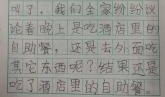 收了，我们全家纷纷议
论着晚上是吃酒店里的
自助餐，还是去外面吃
其它东西呢？结果还是
吃了酒店里的自助餐。